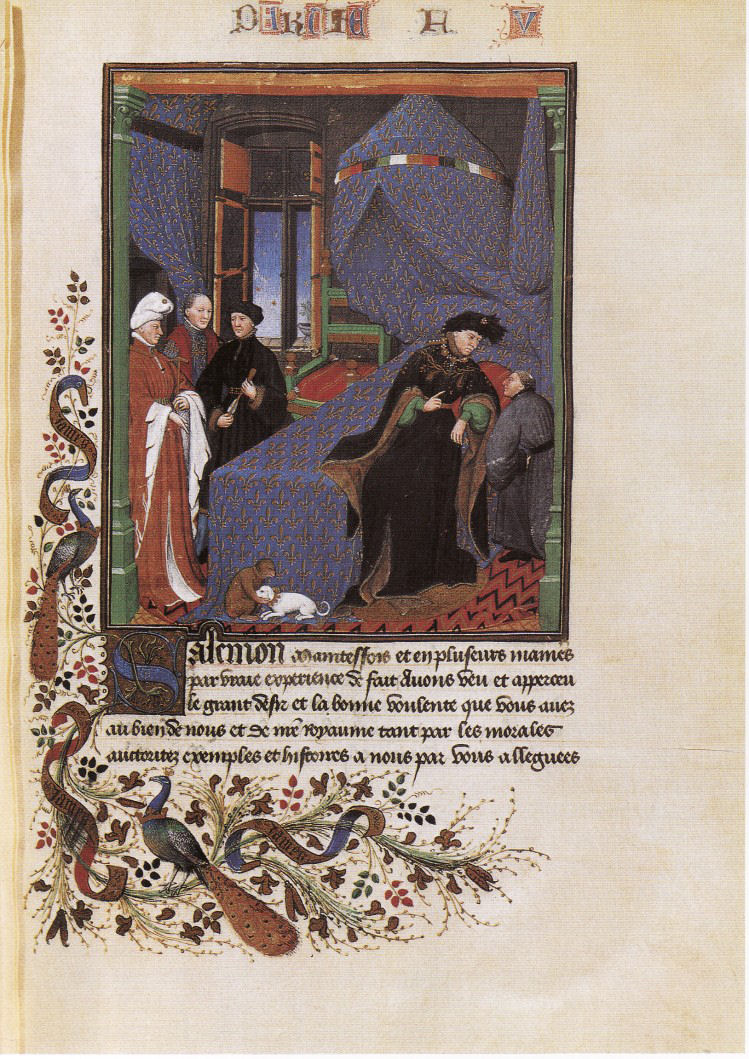 PARTIE A V
Salemon Maintesfois et en plusieurs manies
par vraie experience de fait Avons veu et apperceu
le grant desir et la bonne voulente que vous avez
au bien de nous et de nre Royaume tant par les morales
auctoritez exemples et histoires a nous par vous alleguees